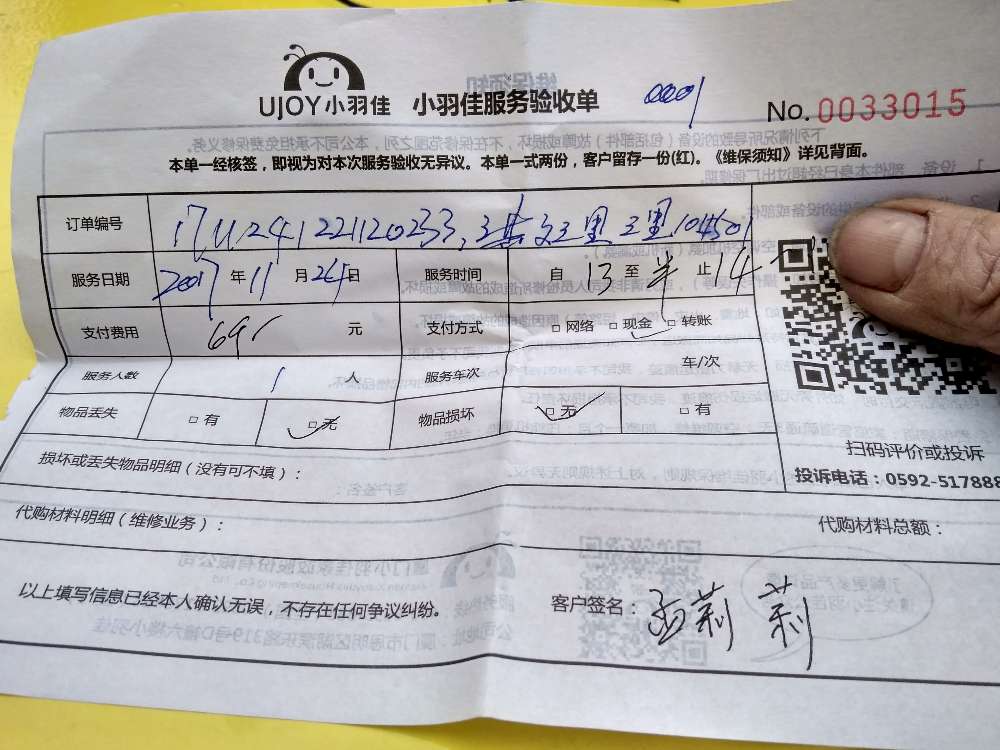 UJOY小羽佳 小羽佳服务验收单 0001 No.0033015
本单一经核签，即视为对本次服务验收无异议。本单一式两份，客户留存一份(红)。《维保须知》详见背面。
订单编号
服务日期 2017年11月24日 服务时间 自13至半止14
支付费用 69 元 支付方式 □网络 □现金 □转账
服务人数 1 人 服务车次 车/次
物品丢失 □有 □无 物品损坏 □无 □有
损坏或丢失物品明细（没有可不填）：
扫码评价或投诉
投诉电话：0592-517888
代购材料明细（维修业务）： 代购材料总额：
以上填写信息已经本人确认无误，不存在任何争议纠纷。 客户签名： 莉莉